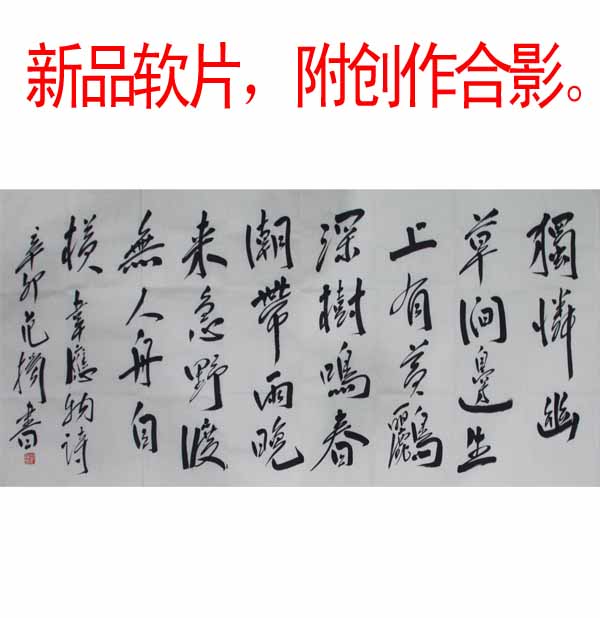 新品软片，附创作合影。
獨憐幽
草澗邊生
上有黃鸝
深樹鳴春
潮帶雨晚
来急野渡
無人舟自
橫 韋應物詩
辛卯范書